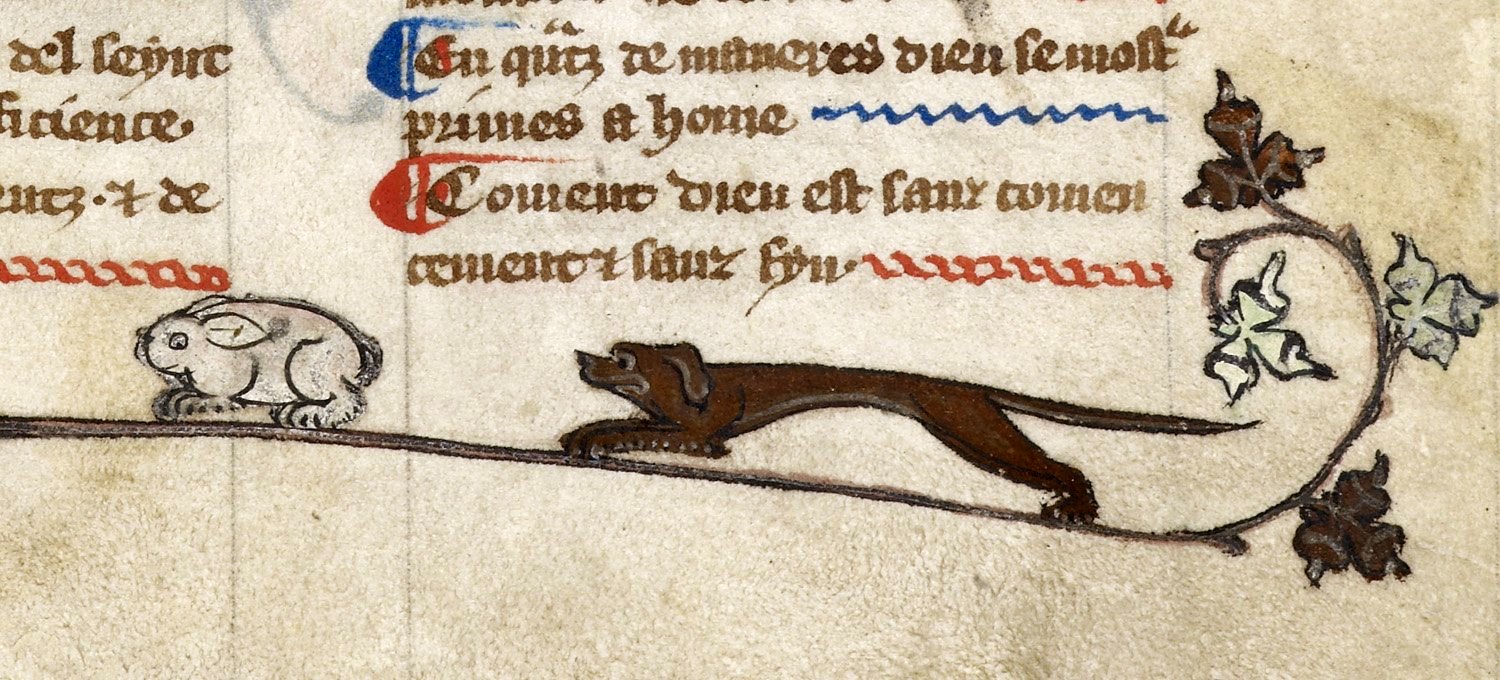 del seynt
ficience
entz · ⁊ de
¶ En qⁱntz de maneres dieu se most
primes a home
¶ Coment dieu est sanz comen
cement ⁊ sanz fyn ·